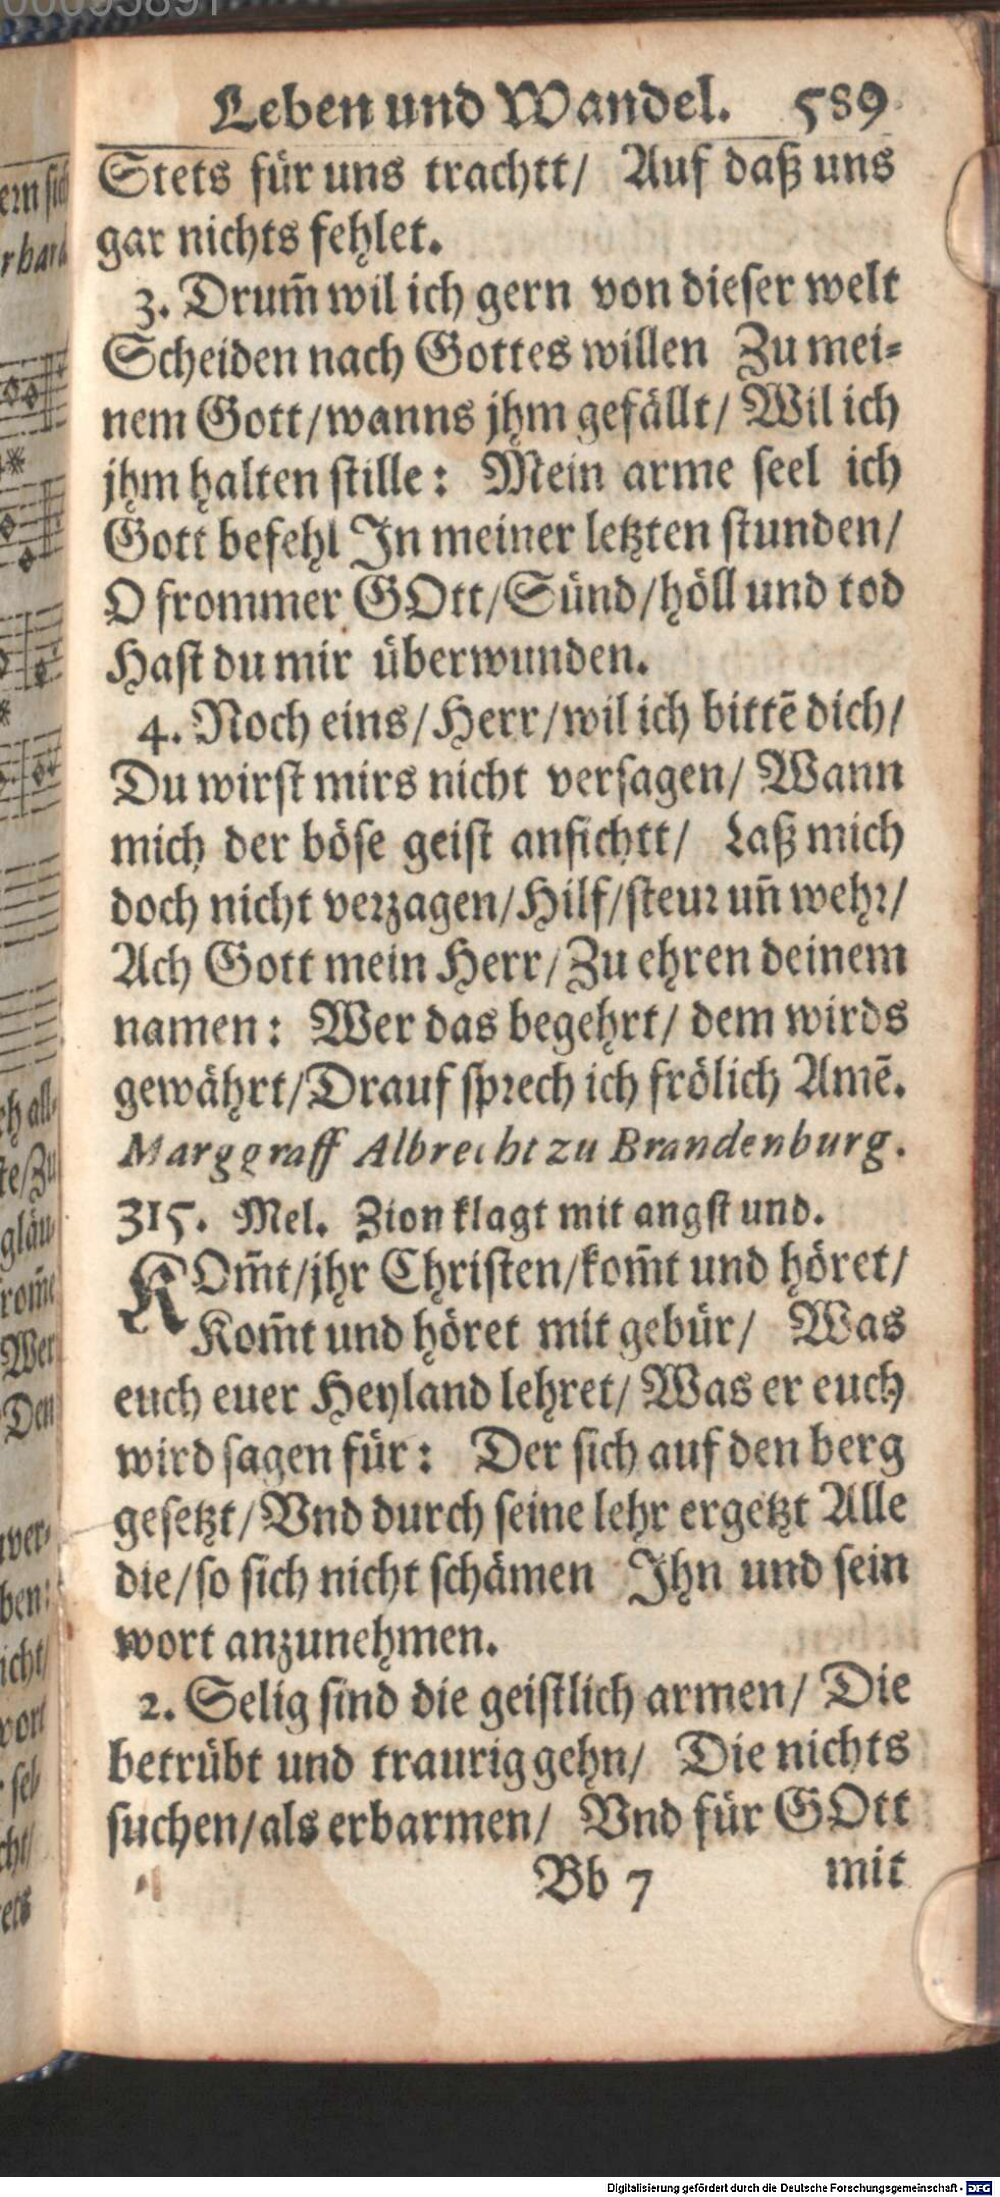 Leben und Wandel. 589
Stets für uns trachtt/ Auf daß uns
gar nichts fehlet.
3. Drum̃ wil ich gern von dieser welt
Scheiden nach Gottes willen Zu mei-
nem Gott/wanns jhm gefällt/ Wil ich
jhm halten stille: Mein arme seel ich
Gott befehl In meiner letzten stunden/
O frommer GOtt/Sünd/höll und tod
Hast du mir überwunden.
4. Noch eins/Herr/wil ich bittẽ dich/
Du wirst mirs nicht versagen/ Wann
mich der böse geist anfichtt/ Laß mich
doch nicht verzagen/Hilf/steur uñ wehr/
Ach Gott mein Herr/Zu ehren deinem
namen: Wer das begehrt/ dem wirds
gewährt/Drauf sprech ich frölich Amẽ.
Marggraff Albrecht zu Brandenburg.
315. Mel. Zion klagt mit angst und.
KOm̃t/jhr Christen/kom̃t und höret/
Kom̃t und höret mit gebür/ Was
euch euer Heyland lehret/ Was er euch
wird sagen für: Der sich auf den berg
gesetzt/Vnd durch seine lehr ergetzt Alle
die/so sich nicht schämen Ihn und sein
wort anzunehmen.
2. Selig sind die geistlich armen/ Die
betrübt und traurig gehn/ Die nichts
suchen/als erbarmen/ Vnd für GOtt
Bb 7 mit
Digitalisierung gefördert durch die Deutsche Forschungsgemeinschaft - DFG